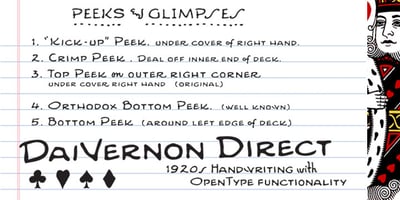 PEEKS & GLIMPSES
1. "KICK-UP" PEEK. UNDER COVER OF RIGHT HAND.
2. CRIMP PEEK. DEAL OFF INNER END OF DECK.
3. TOP PEEK ON OUTER RIGHT CORNER
UNDER COVER RIGHT HAND (ORIGINAL)
4. ORTHODOX BOTTOM PEEK. (WELL KNOWN)
5. BOTTOM PEEK (AROUND LEFT EDGE OF DECK)
DAIVERNON DIRECT
1920s HANDWRITING with
OPENTYPE FUNCTIONALITY